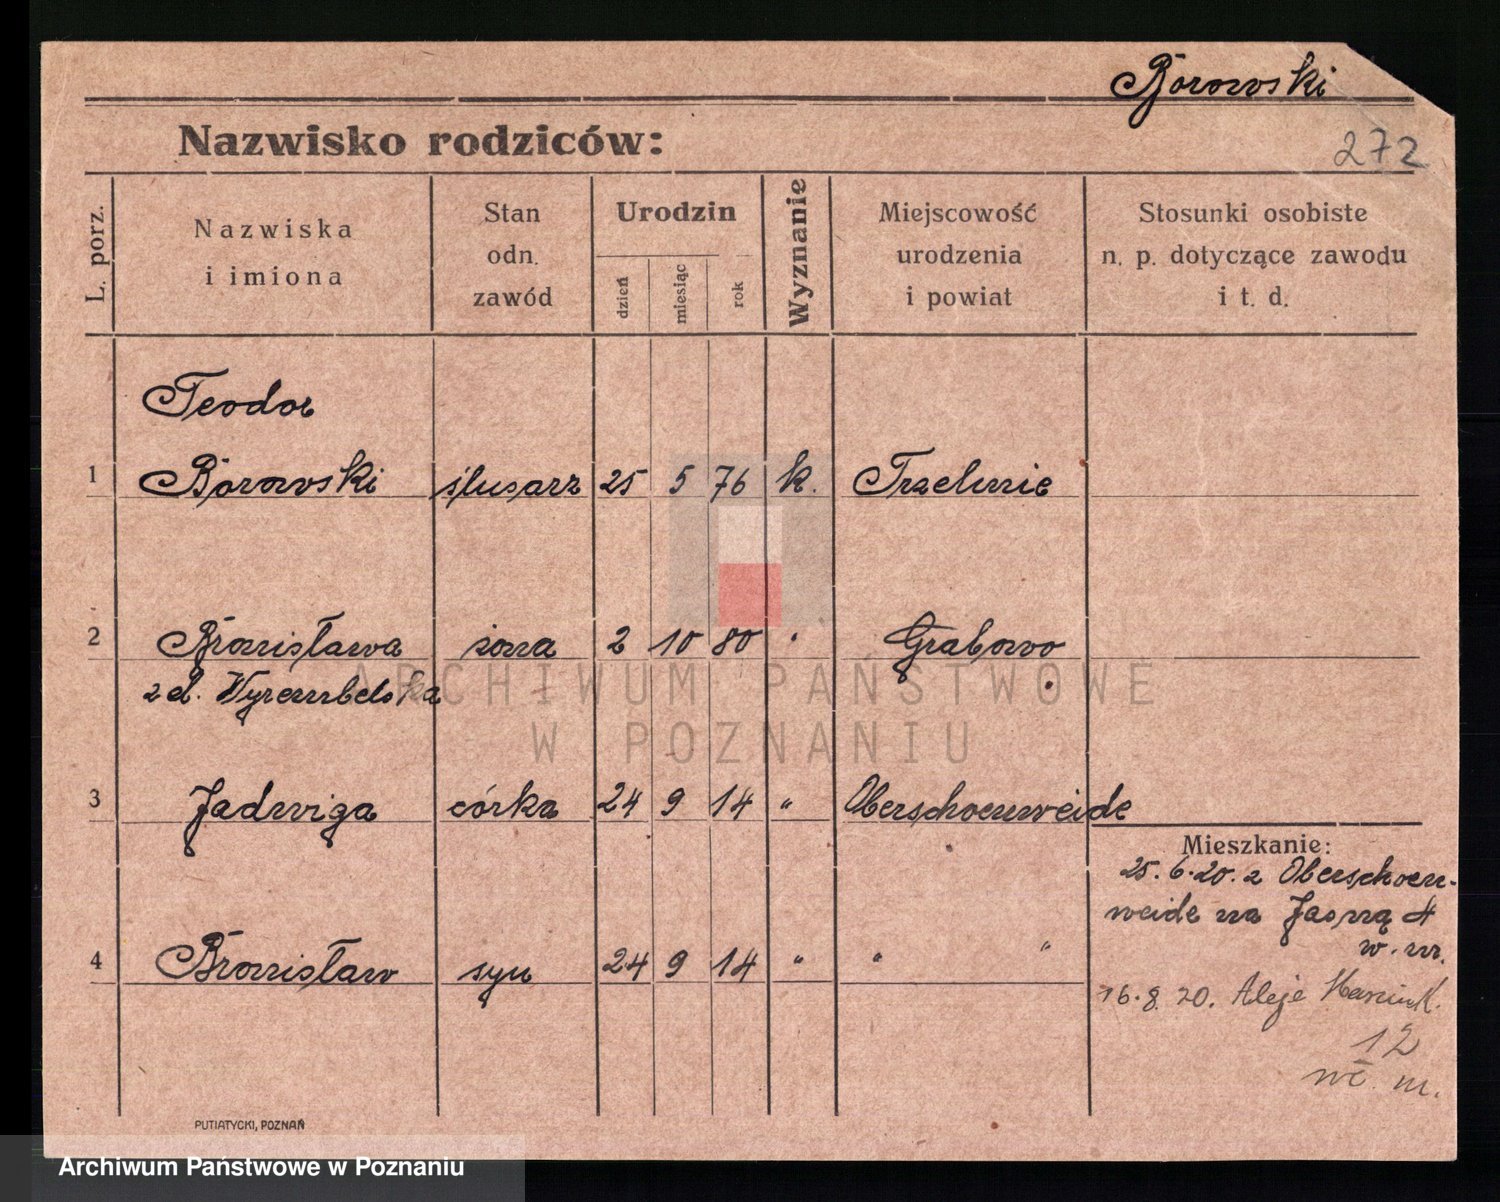 Borowski
272
Nazwisko rodziców:
L. porz.
Nazwiska
i imiona
Stan
odn.
zawód
Urodzin
dzień
miesiąc
rok
Wyznanie
Miejscowość
urodzenia
i powiat
Stosunki osobiste
n. p. dotyczące zawodu
i t. d.
Teodor
1 Borowski ślusarz 25 5 76 k.
2 Bronisława żona 2 10 80 " Grabowo
zd. Wyrembelska
3 Jadwiga córka 24 9 14 " Oberschoenweide
4 Bronisław syn 24 9 14 " " "
Mieszkanie:
25.6.20. z Oberschoen-
weide na Jasną 4
w. m.
16.8.20. Aleje Marcink.
12
w. m.
PUTIATYCKI, POZNAŃ
ARCHIWUM PAŃSTWOWE
W POZNANIU
Archiwum Państwowe w Poznaniu